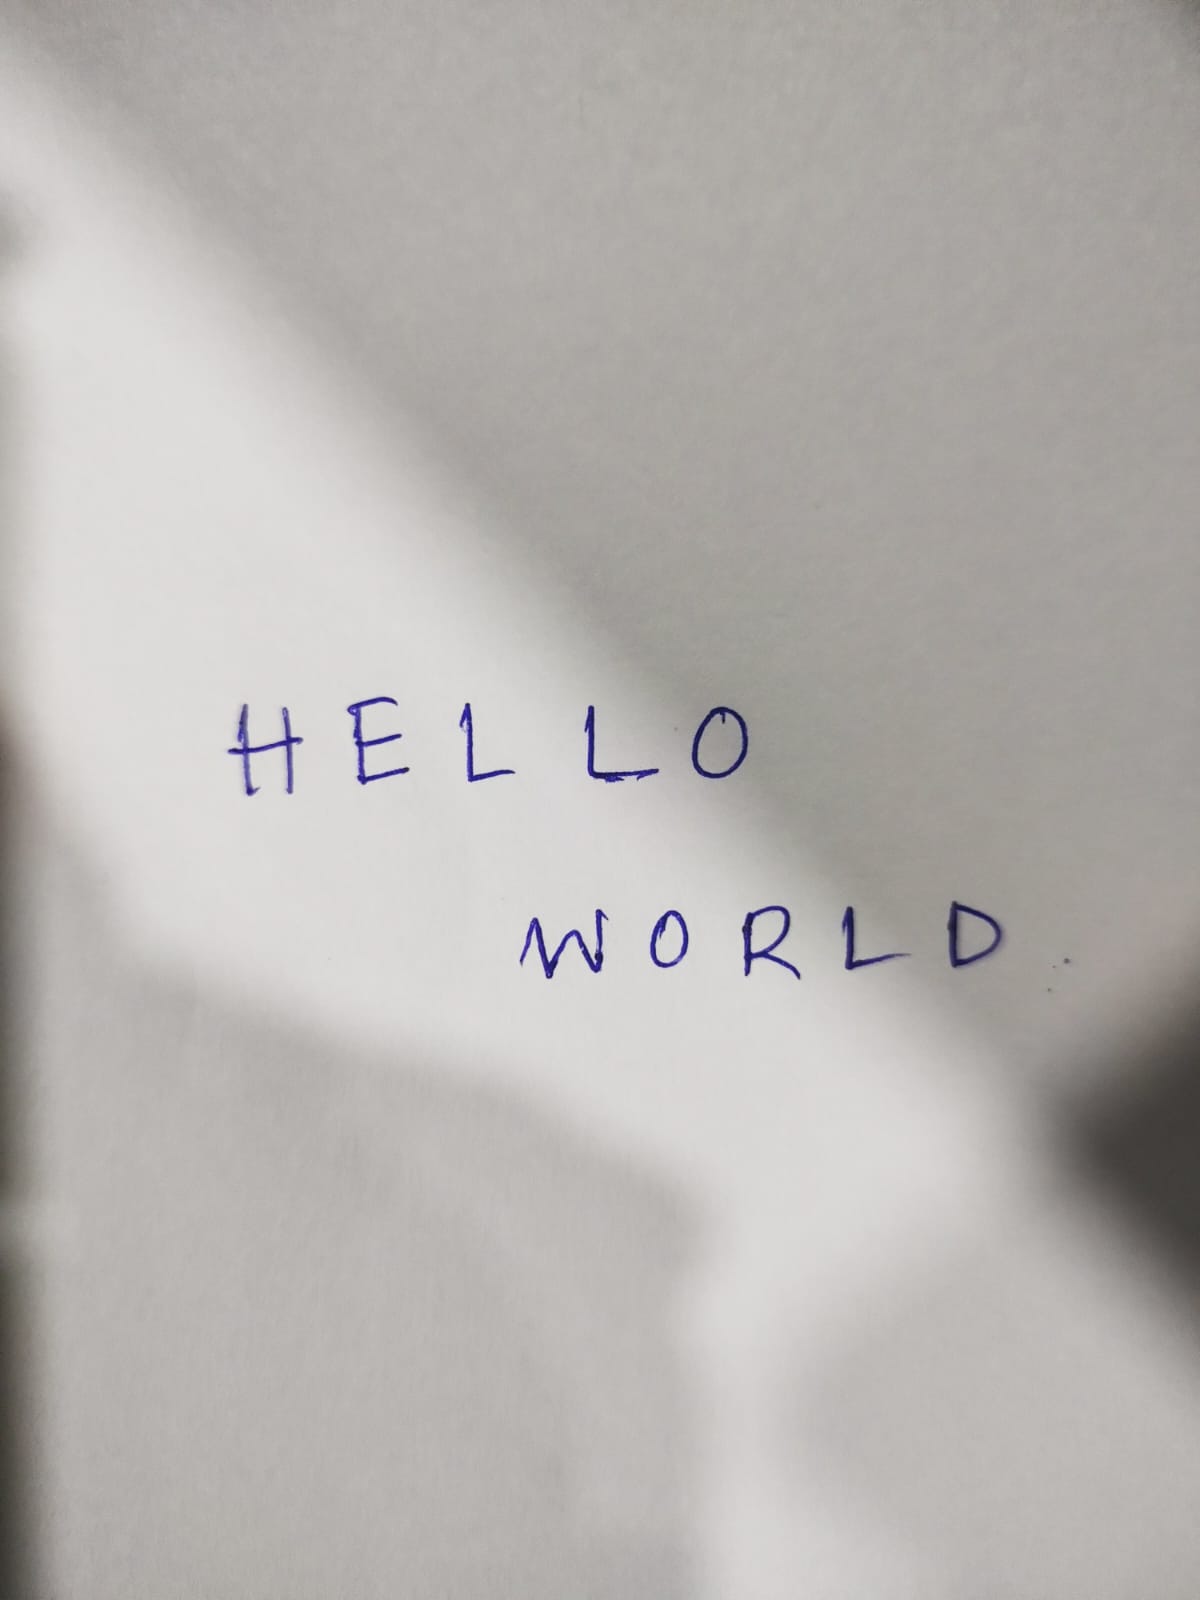 HELLO
WORLD.